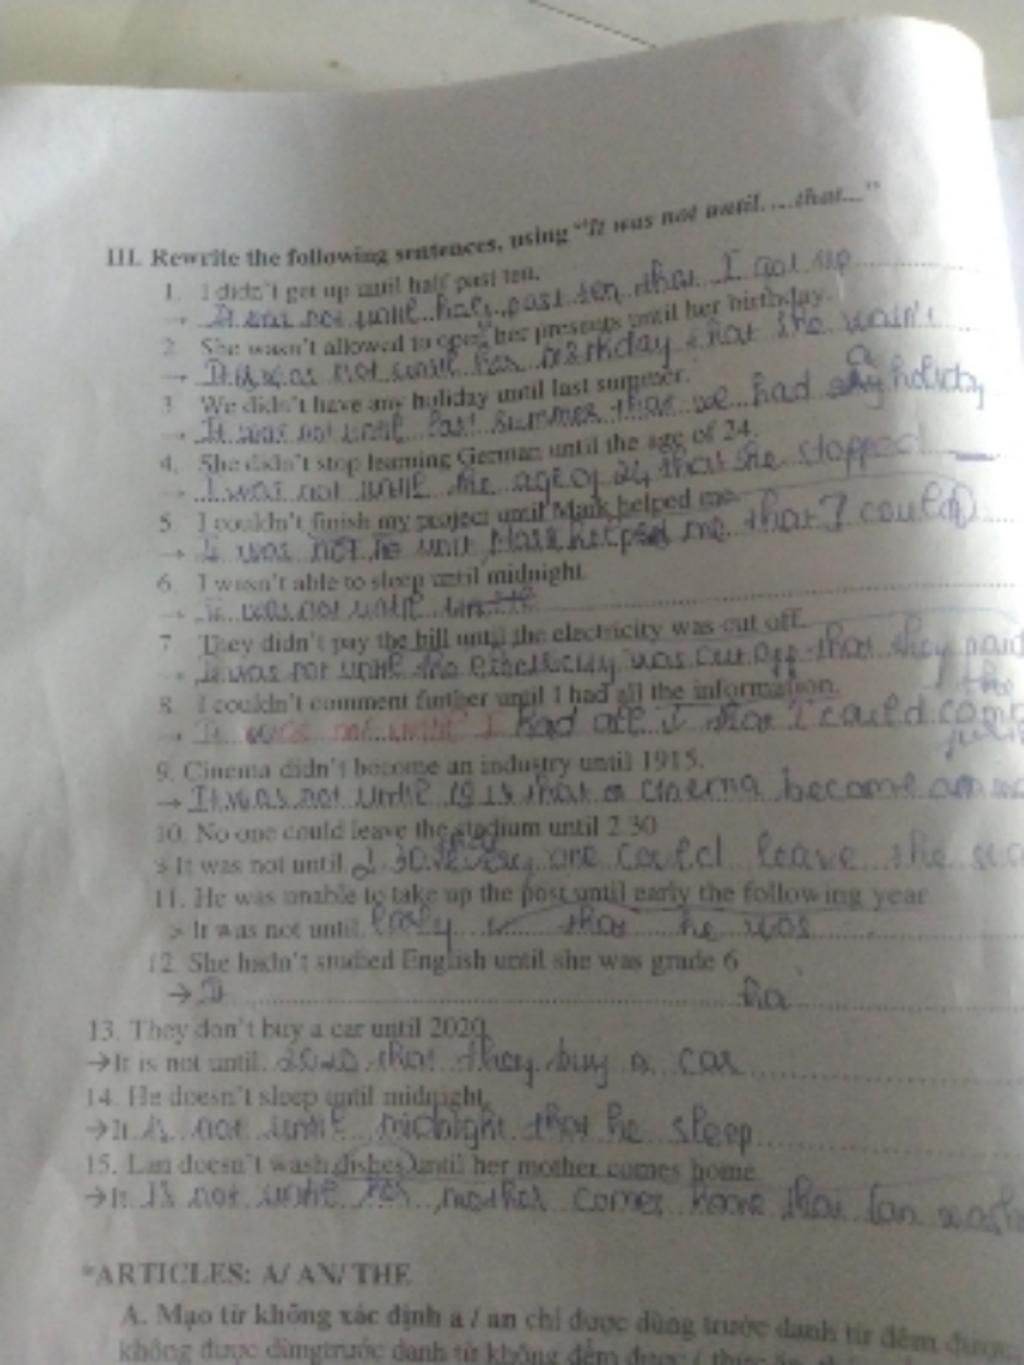 III. Rewrite the following sentences, using "It was not until....that..."
1. I didn't get up until half past ten.
→ It was not until half past ten that I got up
2. She wasn't allowed to open her presents until her birthday.
→ It was not until her birthday that she wasn't
3. We didn't have any holiday until last summer.
→ It was not until last summer that we had a holiday
4. She didn't stop learning German until the age of 24.
→ I was not until the age of 24 that she stopped
5. I couldn't finish my project until Mark helped me.
→ It was not until Mark helped me that I could
6. I wasn't able to sleep until midnight.
→ It was not until
7. They didn't pay the bill until the electricity was cut off.
→ It was not until the electricity was cut off that they paid the
8. I couldn't comment further until I had all the information.
→ It was not until I had all that I could
9. Cinema didn't become an industry until 1915.
→ It was not until 1915 that a cinema become an
10. No one could leave the stadium until 2.30
> It was not until 2.30 every one could leave the
11. He was unable to take up the post until early the following year.
> It was not until that he was
12. She hadn't studied English until she was grade 6
→ It
13. They don't buy a car until 2020.
→ It is not until 2020 that they buy a car
14. He doesn't sleep until midnight.
→ It is not until midnight that he sleep
15. Lan doesn't wash dishes until her mother comes home.
→ It is not until her mother comes home that Lan wash
*ARTICLES: A/ AN/ THE
A. Mạo từ không xác định a / an chỉ được dùng trước danh từ đếm được
không được dùng trước danh từ không đếm được